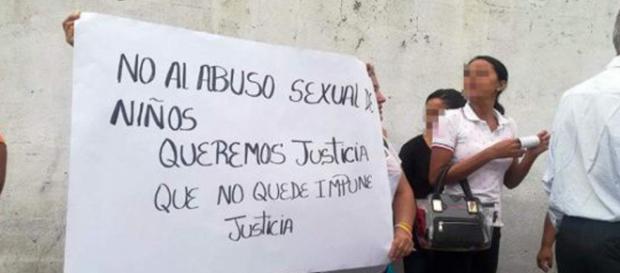 NO AL ABUSO SEXUAL DE
NIÑOS
QUEREMOS JUSTICIA
QUE NO QUEDE IMPUNE
JUSTICIA